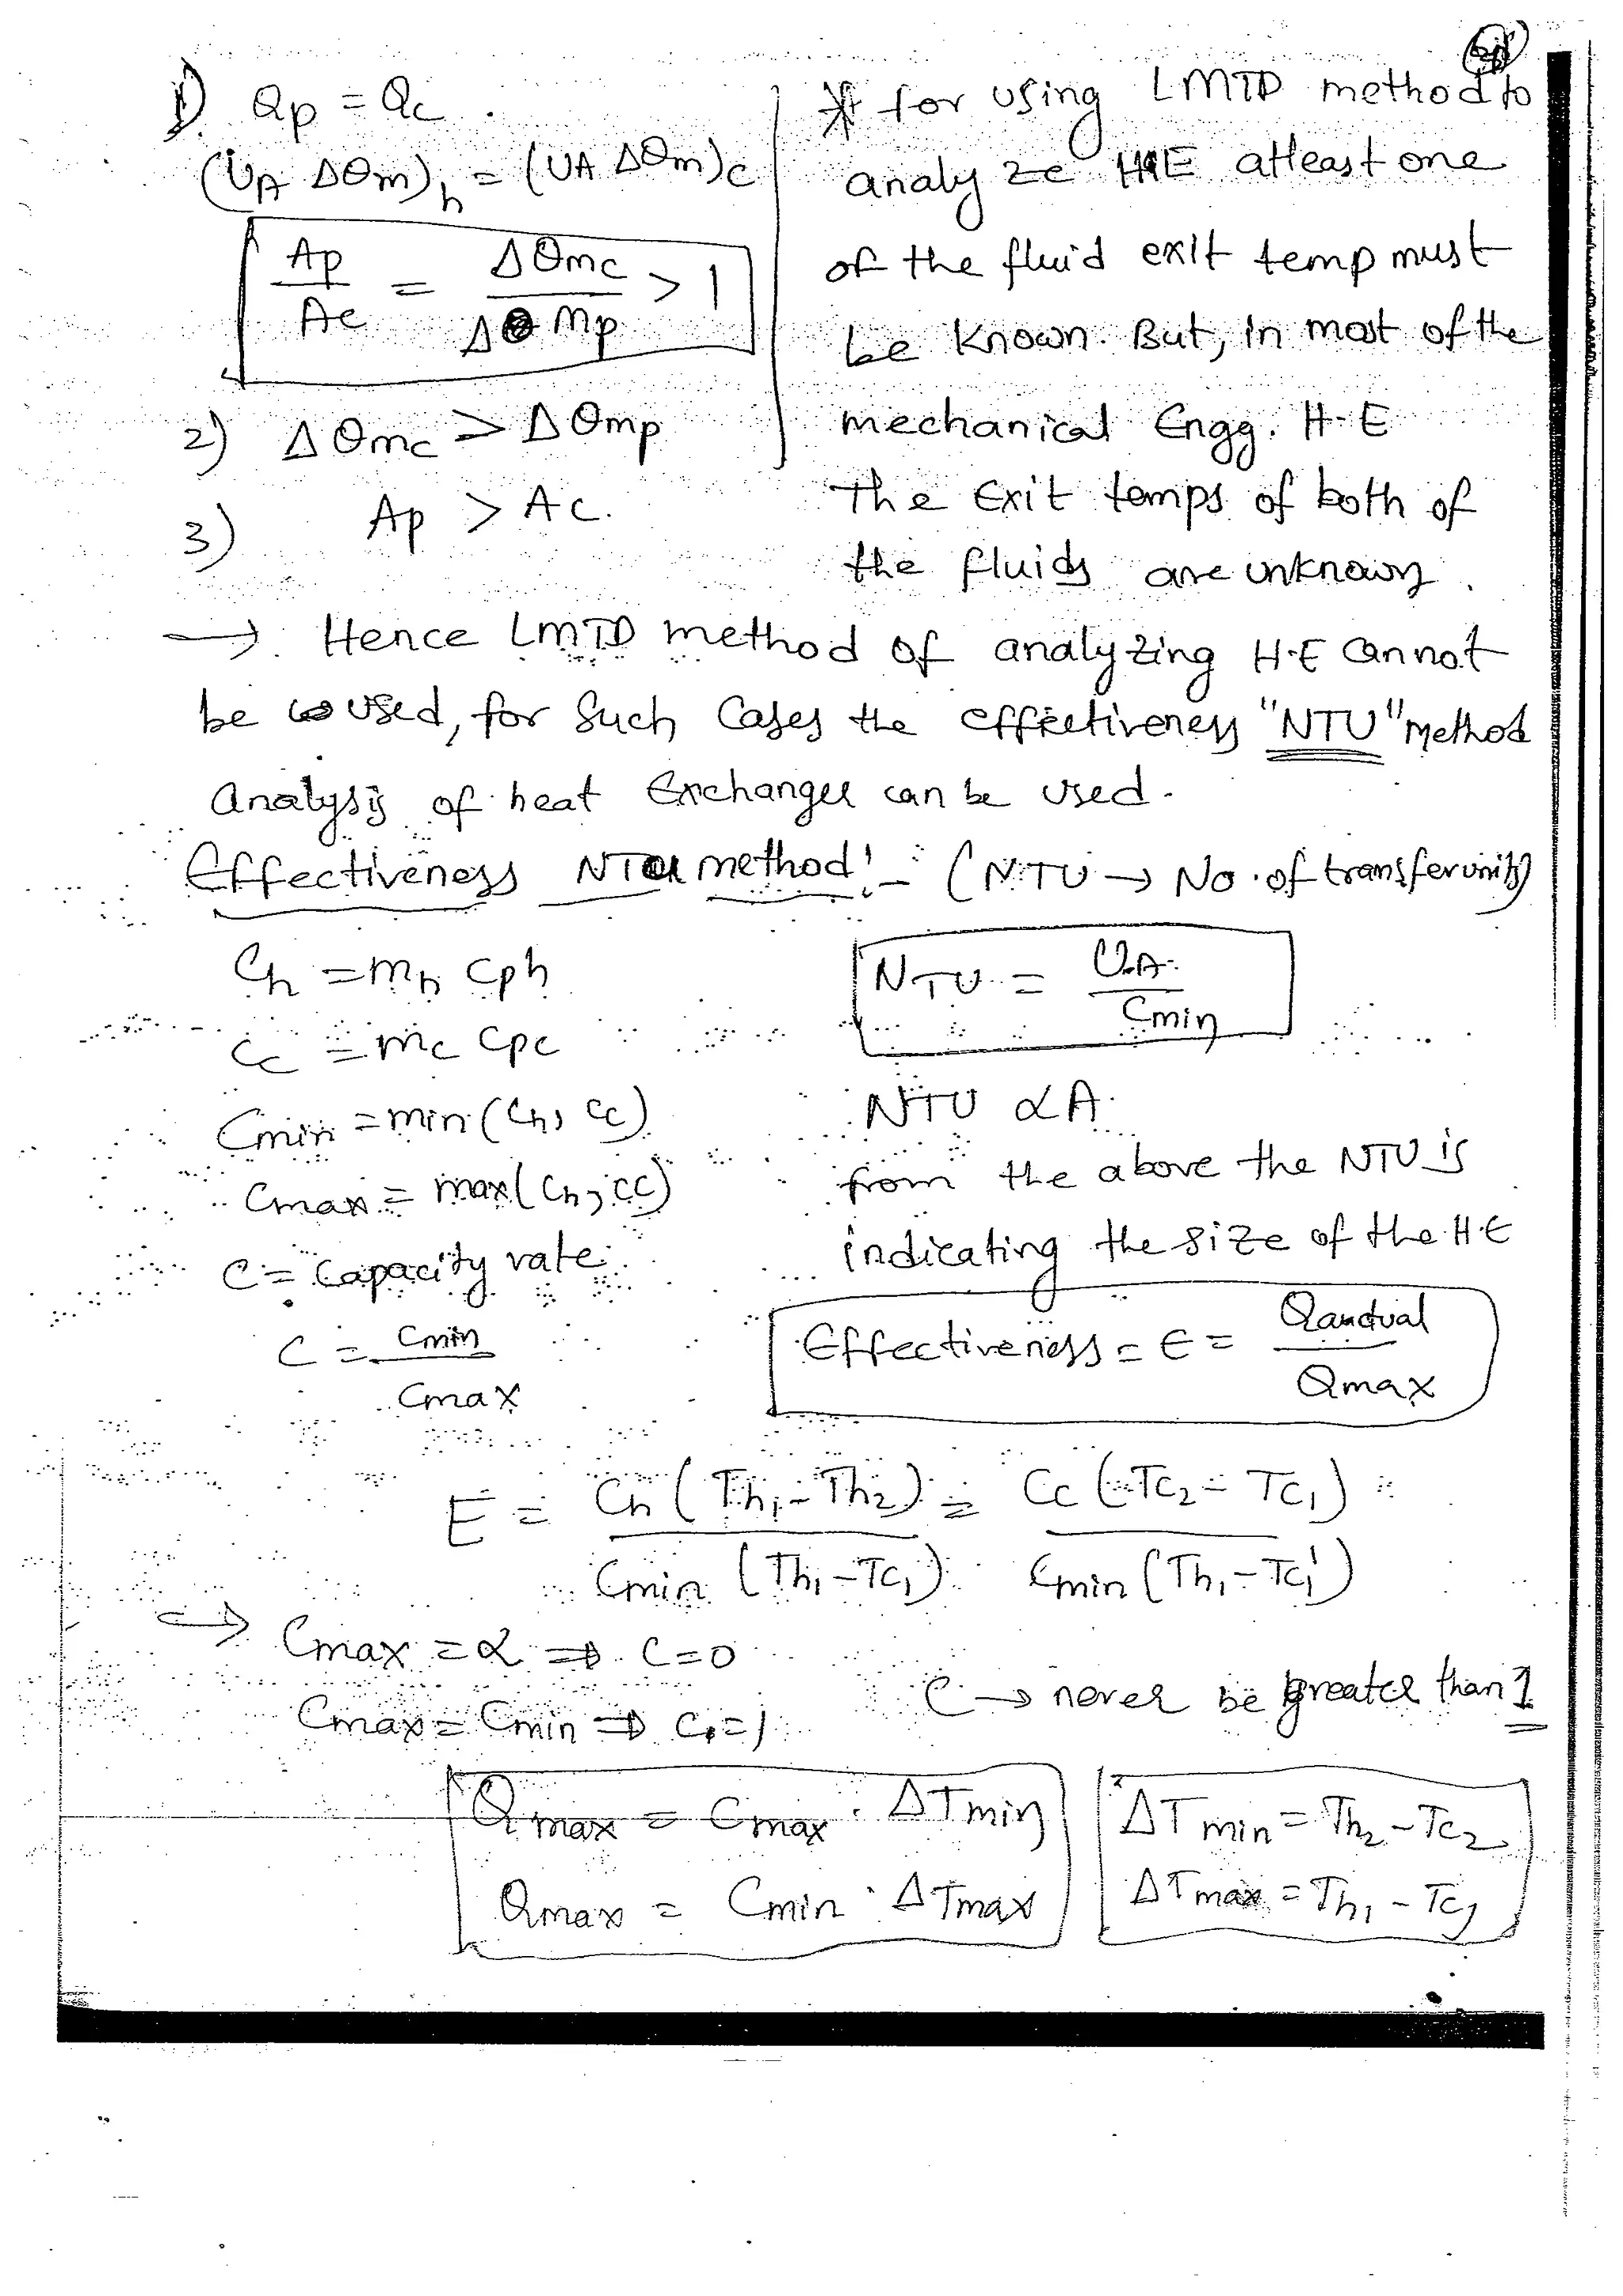 1) Qp = Qc .
(UA ΔΘm)h = (UA ΔΘm)c
Ap / Ac = ΔΘmc / ΔΘmp > 1
2) ΔΘmc > ΔΘmp
3) Ap > Ac.
* for using LMTD method to
analyze HE atleast one
of the fluid exit temp must
be known. But, in most of the
mechanical Engg. H-E
The Exit temps of both of
the fluids are unknown.
→ Hence LMTD method of analyzing H·E Cannot
be used, for Such Cases the effectiveness "NTU" Method
analysis of heat Exchanger can be used.
Effectiveness NTU method:- (NTU → No. of transfer units)
Ch = mh cph
Cc = mc cpc
Cmin = min (Ch, Cc)
Cmax = max (Ch, Cc)
C = Capacity rate
C = Cmin / Cmax
NTU = U.A / Cmin
NTU ∝ A
from the above the NTU is
indicating the size of the H·E
Effectiveness = E = Qauctual / Qmax
E = Ch (Th1 - Th2) / Cmin (Th1 - Tc1) = Cc (Tc2 - Tc1) / Cmin (Th1 - Tc1)
→ Cmax = ∝ ⇒ C = 0
Cmax = Cmin ⇒ C = 1
C → never be greater than 1
Qmax = Cmax · ΔTmin
Qmax = Cmin · ΔTmax
ΔTmin = Th2 - Tc2
ΔTmax = Th1 - Tc1